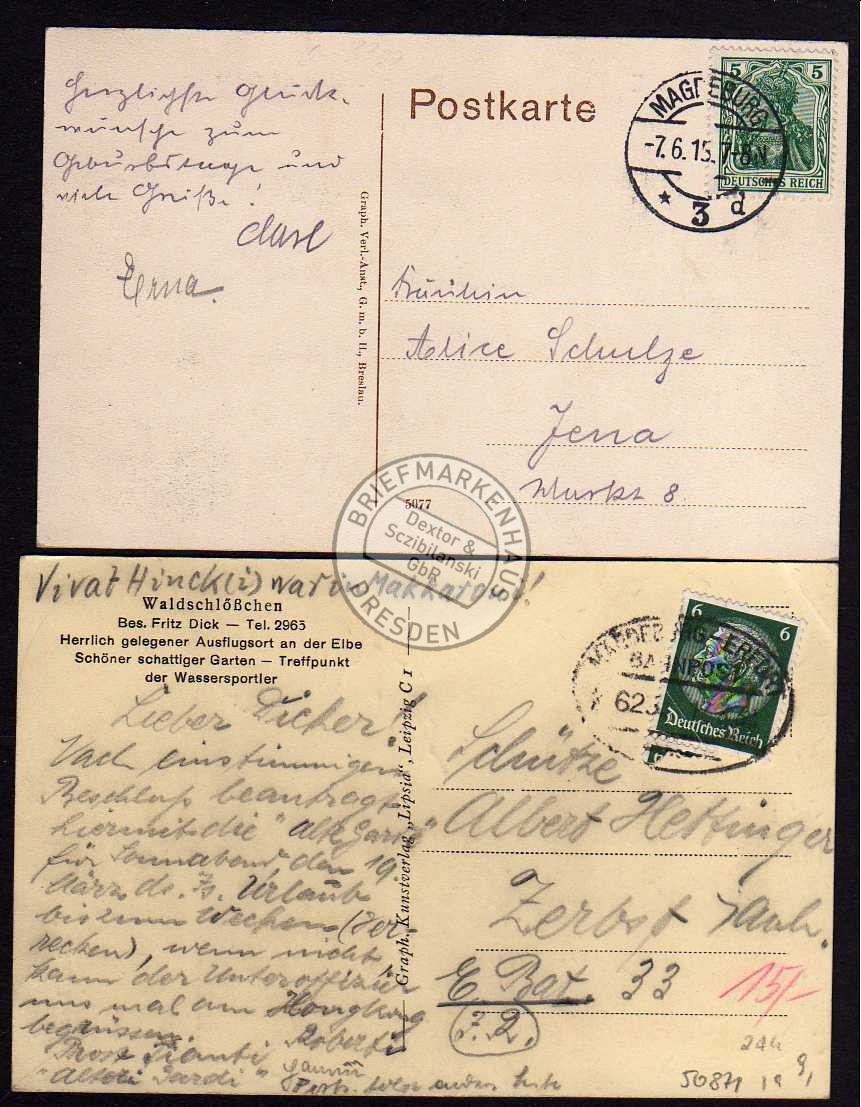 Herzlichste Glück-
wünsche zum
Geburtstage und
viele Grüße!
Erna.
Postkarte
MAGDEBURG
-7.6.15. 7-8N
* 3 d
5 5
DEUTSCHES REICH
Graph. Verl.-Anst., G. m. b. H., Breslau.
Fräulein
Alice Schulze
Jena
Markt 8.
5077
BRIEFMARKENHAUS
Dextor &
Sczibilanski
GbR
DRESDEN
Vivat Hinck(i) war in Makkaroni!
Waldschlößchen
Bes. Fritz Dick — Tel. 2963
Herrlich gelegener Ausflugsort an der Elbe
Schöner schattiger Garten — Treffpunkt
der Wassersportler
Lieber Dicker!
Nach einstimmigen
Beschluß beantragt
hiermit die "alte Garde"
für Sonnabend, den 19.
März ds. Js. Urlaub
bis zum Wecken (Ver-
recken), wenn nicht
kann der Unteroffizier
uns mal am Hongkong
begrüssen.
Prost Roberti
Graph. Kunstverlag „Lipsia", Leipzig C 1
MAGDEBURG - ERFURT
BAHNPOST
623
6 6
Deutsches Reich
Schütze
Albert Hettinger
Zerbst /Anh.
E. Bat. 33
15/-
24h
50871